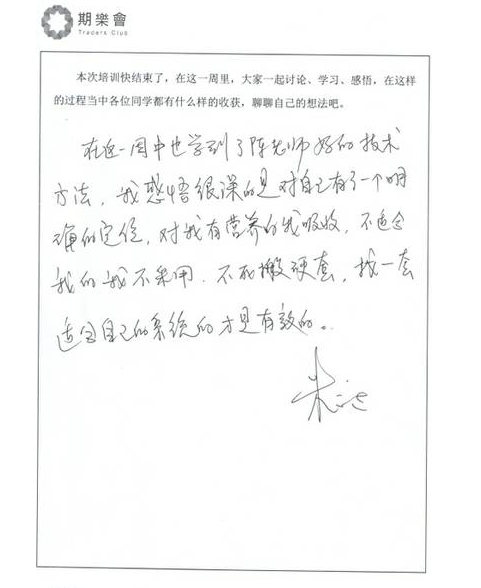 期樂會
Traders Club
本次培训快结束了，在这一周里，大家一起讨论、学习、感悟，在这样
的过程当中各位同学都有什么样的收获，聊聊自己的想法吧。
在这一周中也学到了陈老师好的技术
方法，我感悟很深的是对自己有了一个明
确的定位，对我有营养的我吸收，不适合
我的我不采用．不死搬硬套，找一套
适合自己的系统的才是有效的。